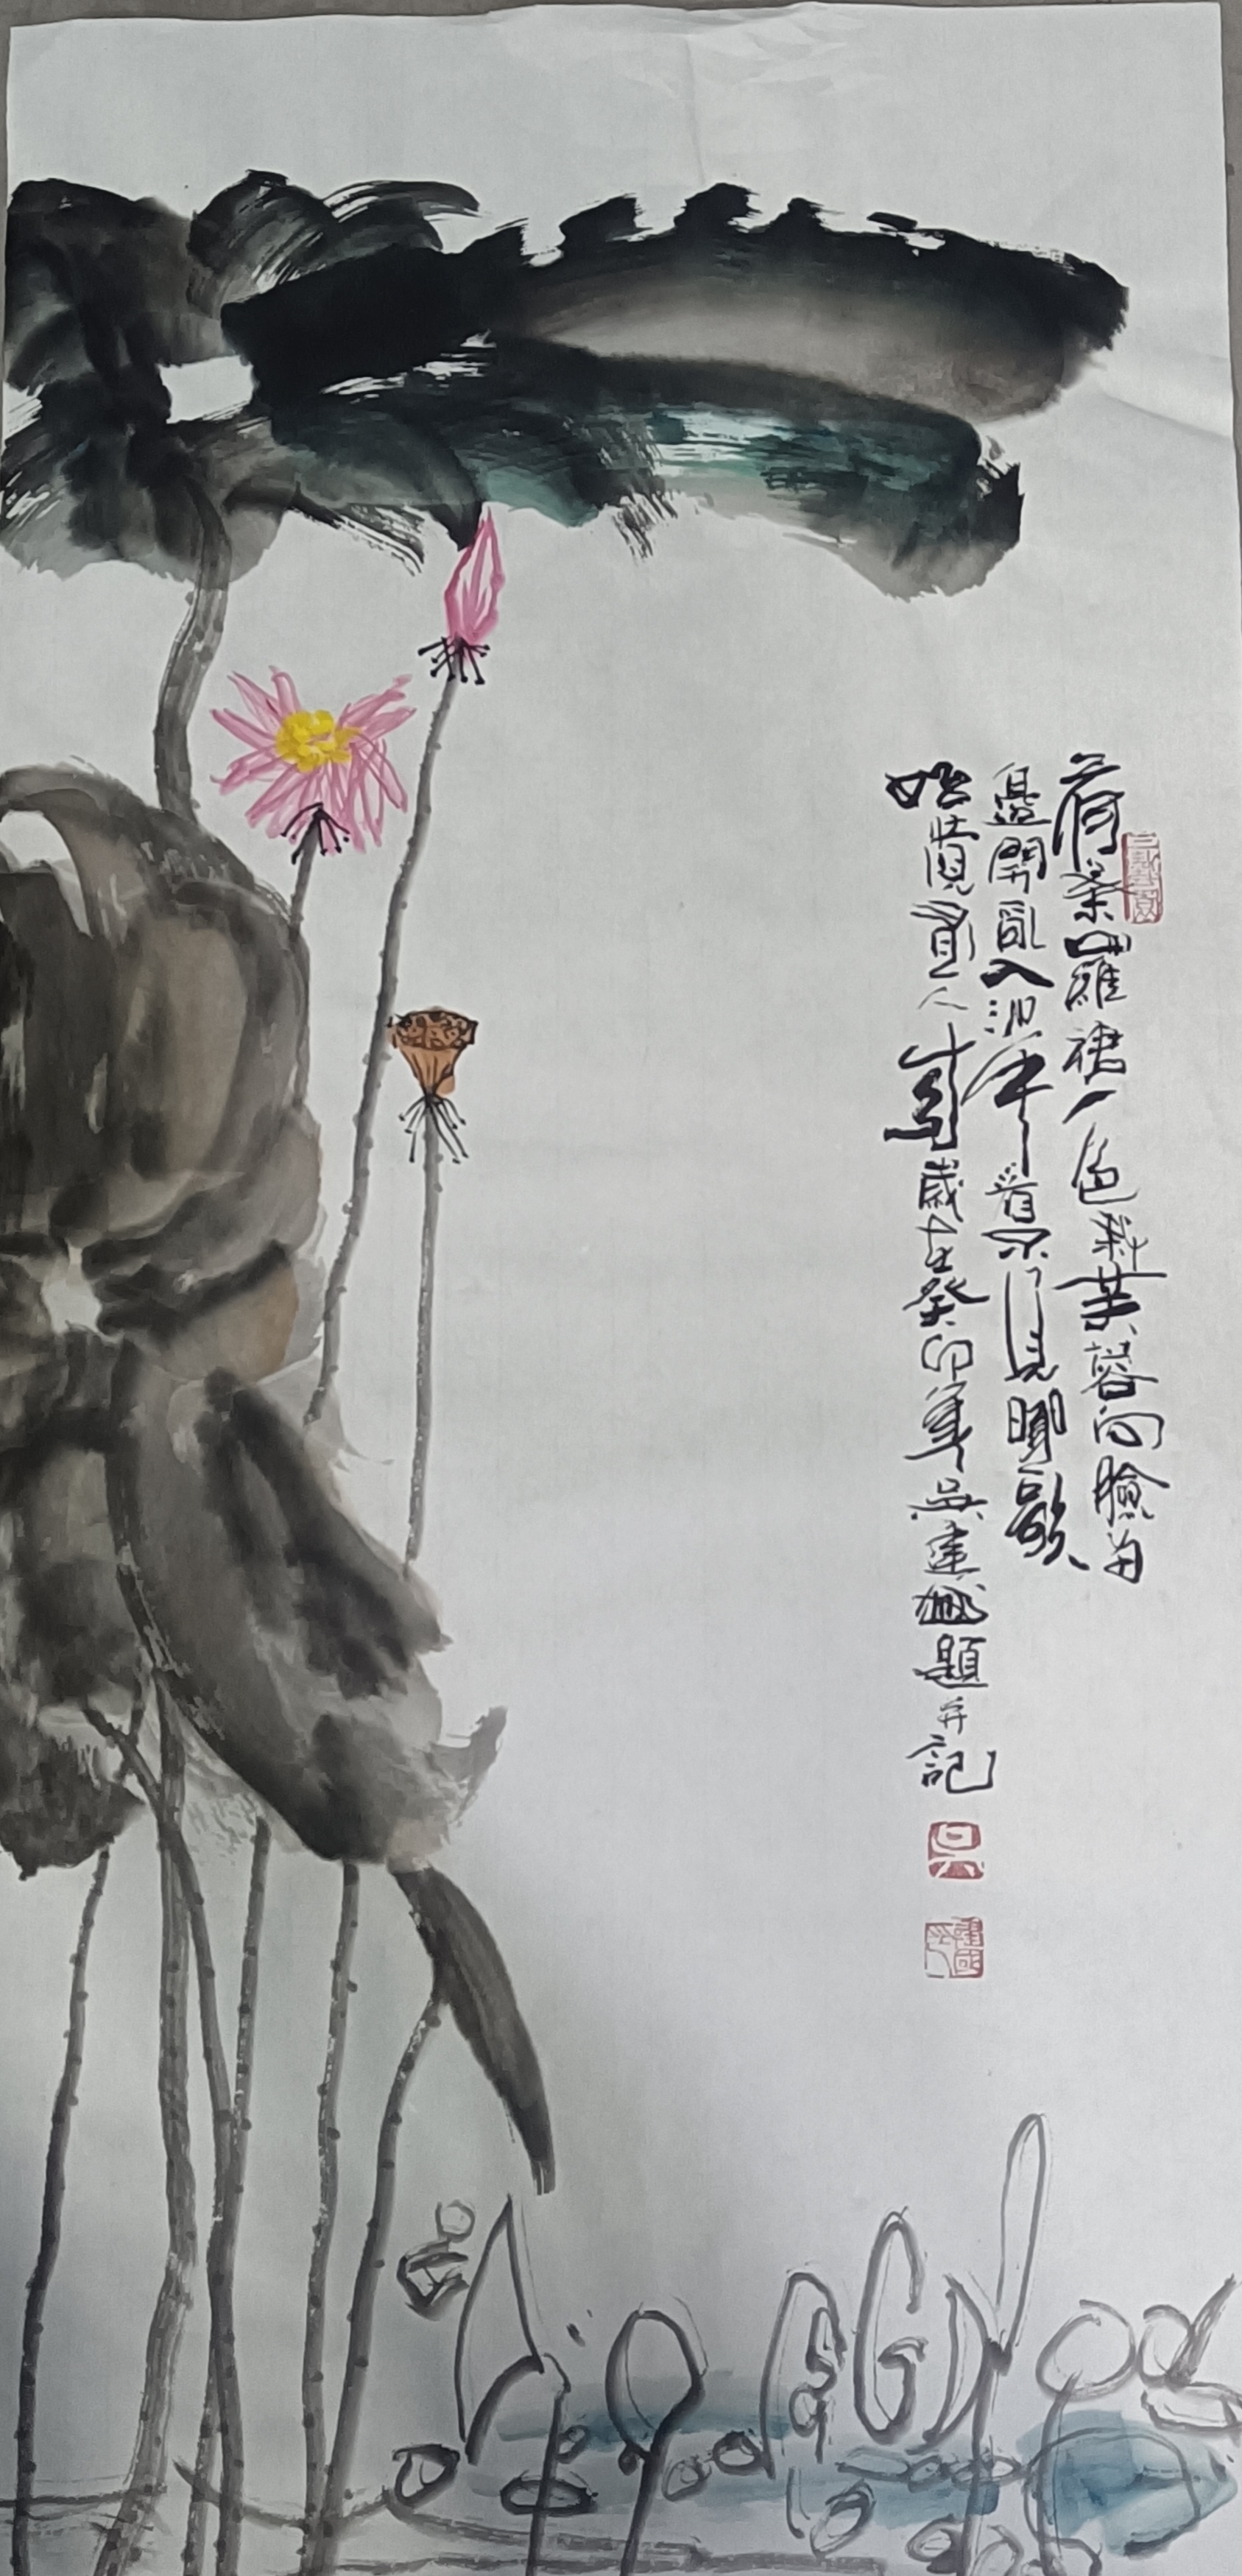 荷葉羅裙一色裁芙蓉向臉两
邊開亂入池中看不見聞歌
始覺有人來歲在癸卯年吳建國題并記
吴
建國